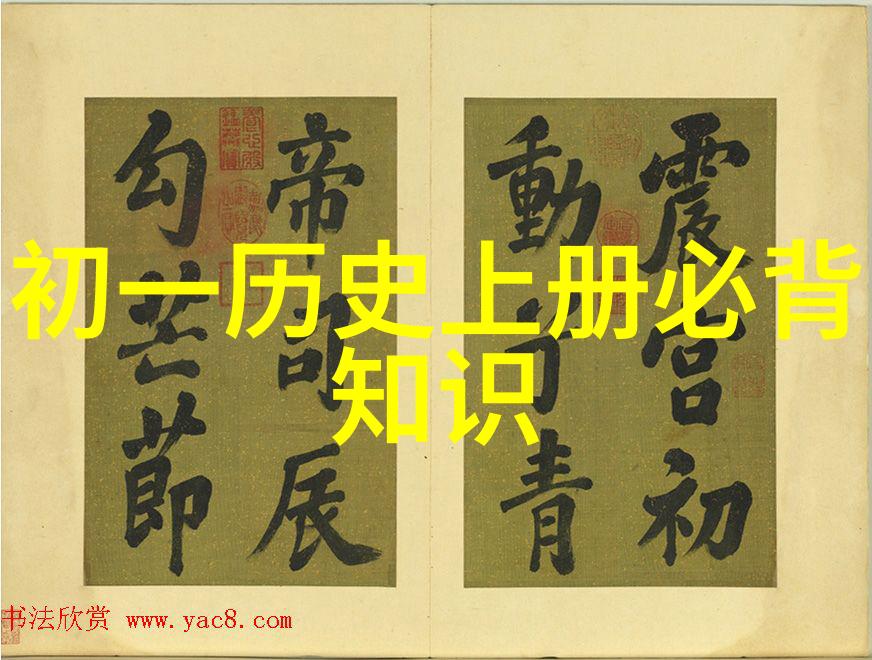 初一历史上册必背
知识
震宫初
動青
帝司辰
勾芒節
书法欣赏 www.yac8.com